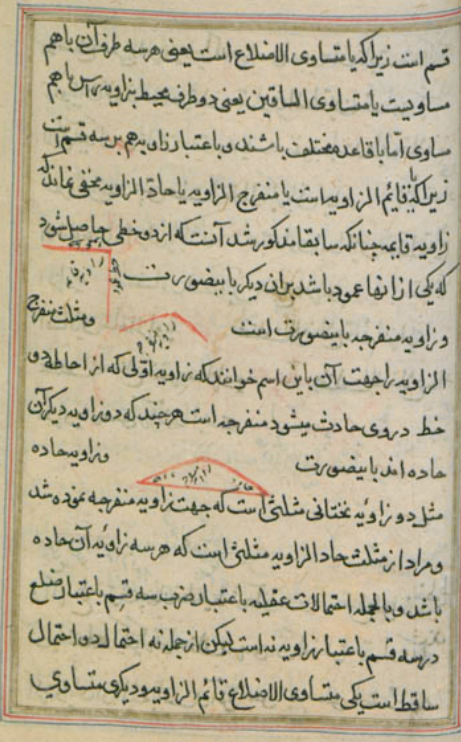 قسم است زیرا که یا متساوی الاضلاع است یعنی هر سه طرف آن با هم
مساویست یا متساوی الساقین یعنی دو طرف محیط بزاویه رأس با هم
مساوی اما با قاعده مختلف باشند و باعتبار زاویه هم بر سه قسم است
زیرا که یا قایم الزاویه است یا منفرج الزاویه یا حادة الزاویه مخفی نماند که
زاویه قایمه چنانکه سابقا مذکور شد آنست که از دو خطی حاصل شود
که یکی از انها عمود باشد بران دیگر باینصورت
زاویه قایمه
و زاویه منفرجه باینصورت است
زاویه منفرجه
و مثلث منفرج
الزاویه را جهت آن باین اسم خوانند که زاویه اولی که از احاطه دو
خط در وی حادث میشود منفرجه است هر چند که دو زاویه دیگر آن
حاده اند باینصورت
وزاویه حاده
حاده
مثل دو زاویه تختانی مثلثی است که جهت زاویه منفرجه نموده شد
و مراد از مثلث حاد الزاویه مثلثی است که هر سه زاویه آن حاده
باشد و بالجمله احتمالات عقلیه باعتبار ضرب سه قسم باعتبار ضلع
در سه قسم باعتبار زاویه نه است لیکن از جمله نه احتمال دو احتمال
ساقط است یکی متساوی الاضلاع قائم الزاویه و دیگری متساوی